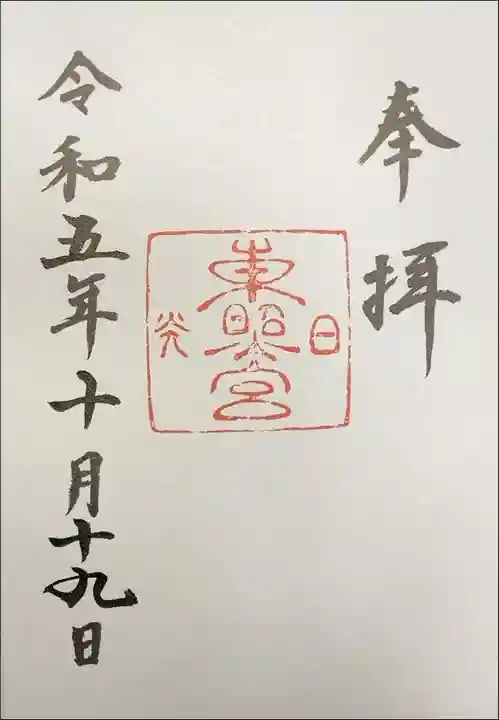 奉拝
日光
東照宮
令和五年十月十九日